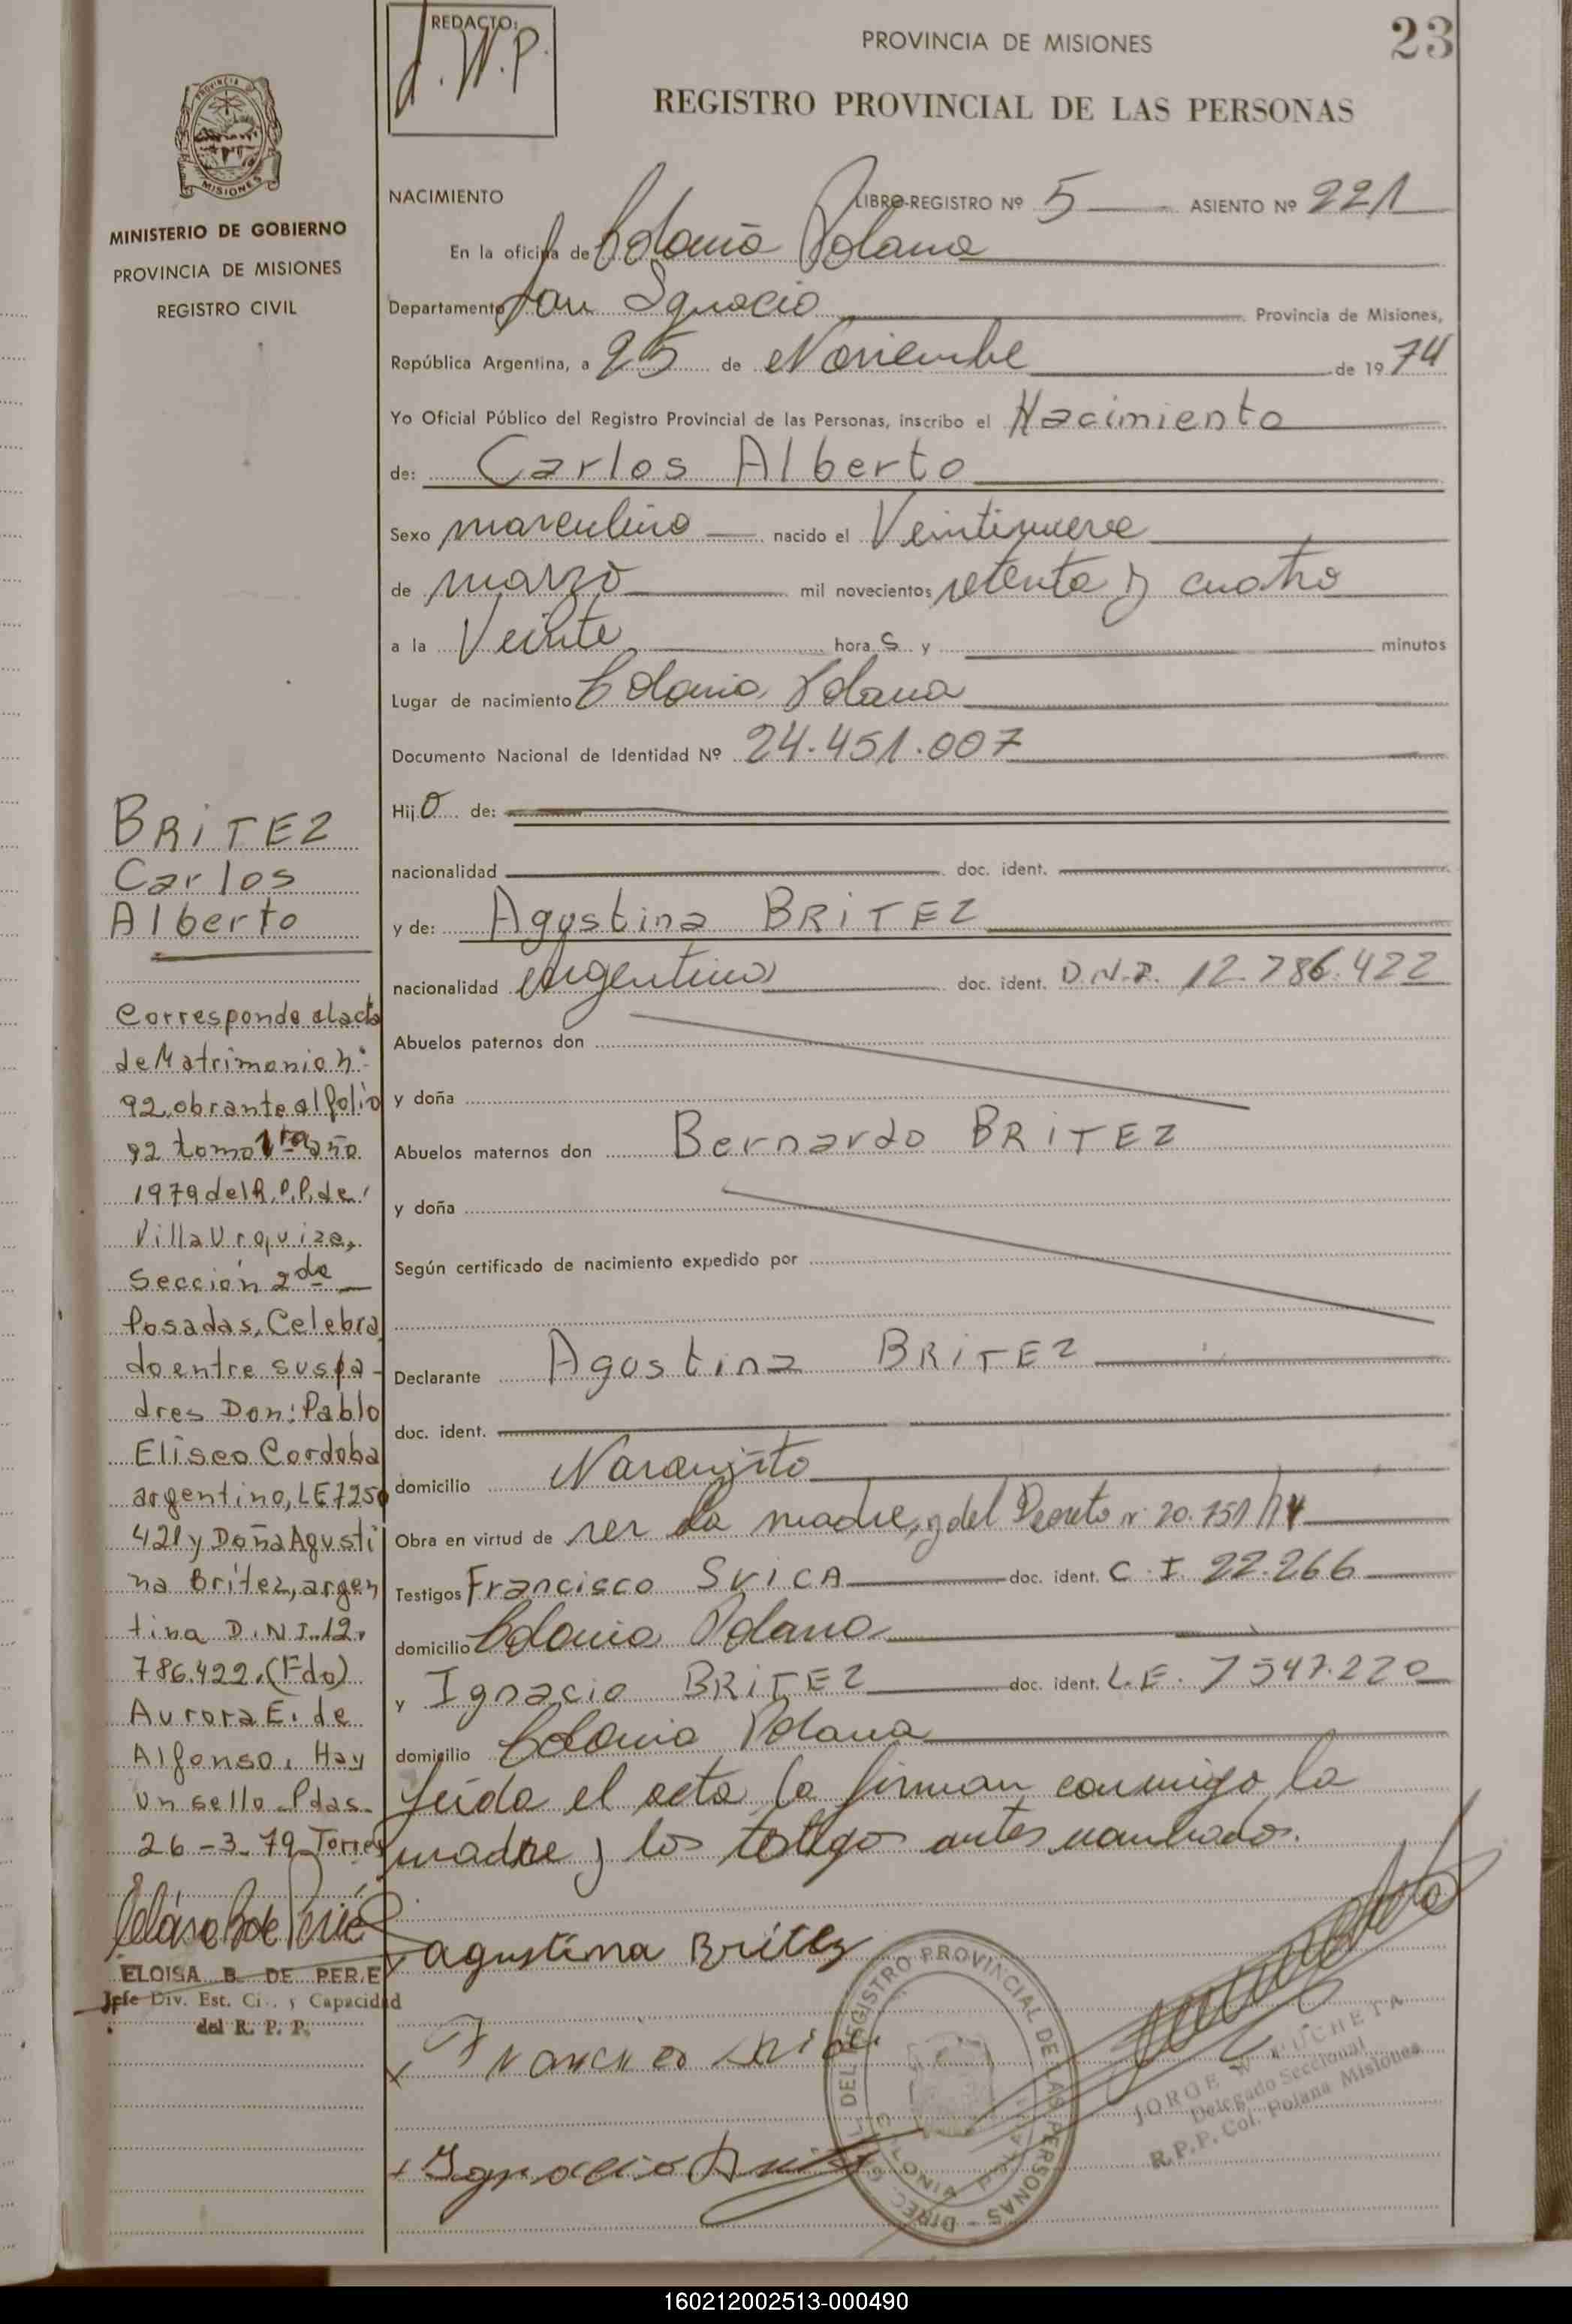 REDACTO:
J.W.P.
PROVINCIA DE MISIONES
23
REGISTRO PROVINCIAL DE LAS PERSONAS
PROVINCIA
MISIONES
MINISTERIO DE GOBIERNO
PROVINCIA DE MISIONES
REGISTRO CIVIL
NACIMIENTO LIBRO-REGISTRO Nº 5 ASIENTO Nº 221
En la oficina de Colonia Polana
Departamento San Ignacio Provincia de Misiones,
República Argentina, a 25 de Noviembre de 1974
Yo Oficial Público del Registro Provincial de las Personas, inscribo el Nacimiento
de: Carlos Alberto
Sexo masculino nacido el Veintinueve
de marzo mil novecientos setenta y cuatro
a la Veinte hora s y minutos
Lugar de nacimiento Colonia Polana
Documento Nacional de Identidad Nº 24.451.007
Hij o de:
nacionalidad doc. ident.
y de: Agustina BRITEZ
nacionalidad Argentina doc. ident. D.N.I. 12.786.422
Abuelos paternos don
y doña
Abuelos maternos don Bernardo BRITEZ
y doña
Según certificado de nacimiento expedido por
Declarante Agostina BRITEZ
doc. ident.
domicilio Naranjito
Obra en virtud de ser la madre, y del Decreto nº 20.751/74
Testigos Francisco SVICA doc. ident. C.I. 22.266
domicilio Colonia Polana
y Ignacio BRITEZ doc. ident. L.E. 7547.220
domicilio Colonia Polana
Leída el acta la firman conmigo la
madre y los testigos antes nombrados.
Agustina Britez
Ignacio
DIREC. GRAL. DEL REGISTRO PROVINCIAL DE LAS PERSONAS
COLONIA POLANA
JORGE W.
Delegado Seccional
R.P.P. Col. Polana Misiones
BRITEZ
Carlos
Alberto
Corresponde al acta
de Matrimonio nº
92, obrante al folio
92 tomo 1ro año
1979 del R.P.P. de
Villa Urquiza,
Sección 2da
Posadas, Celebra
do entre sus pa-
dres Don: Pablo
Eliseo Cordoba
argentino, LE 7250
421 y Doña Agusti
na Britez, argen
tina D.N.I. 12.
786.422. (Fdo)
Aurora E. de
Alfonso. Hay
un sello Pdas.
26-3-79 Torres
ELOISA B. DE PERIE
Jefe Div. Est. Ci. y Capacidad
del R. P. P.
160212002513-000490